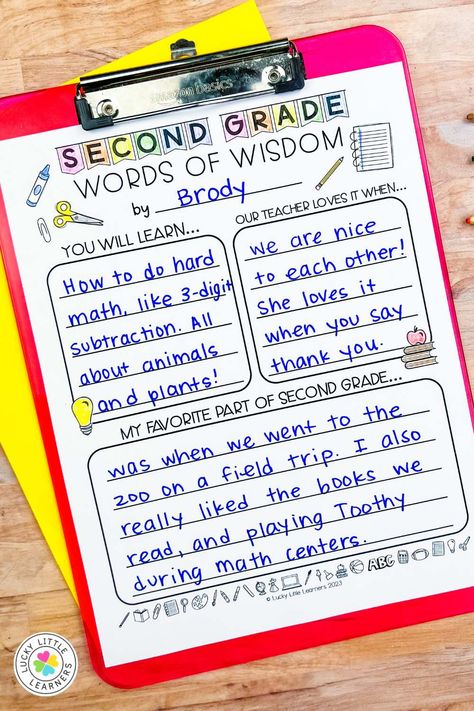 amazon basics
SECOND GRADE
WORDS OF WISDOM
by Brody
YOU WILL LEARN...
How to do hard
math, like 3-digit
subtraction. All
about animals
and plants!
OUR TEACHER LOVES IT WHEN...
we are nice
to each other!
She loves it
when you say
thank you.
MY FAVORITE PART OF SECOND GRADE...
was when we went to the
zoo on a field trip. I also
really liked the books we
read, and playing Toothy
during math centers.
ABC
© Lucky Little Learners 2023
LUCKY LITTLE
LEARNERS